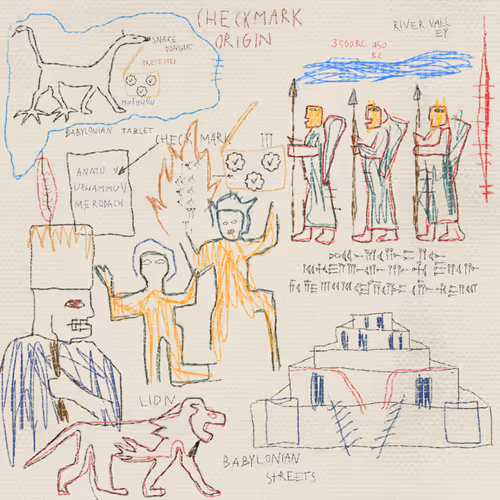 CHECKMARK
ORIGIN
RIVER VALL
EY
3500BC 450
BC
SNAKE
TONGUE
PROTECTED
BABYLONIAN TABLET
CHECK MARK
III
ANATU V
URHAMMU V
MERODACH
LION
BABYLONIAN
STREETS